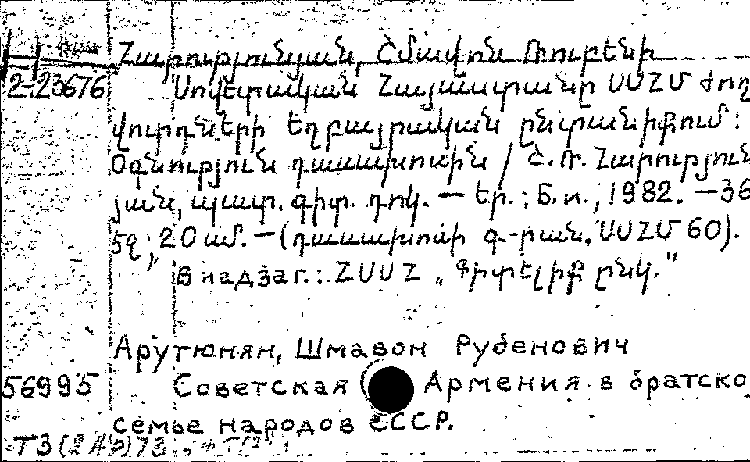 Հարությունյան, Շմավոն Ռուբենի
2-23676 Սովետական Հայաստանը ՍՍՀՄ ժող
վուրդների եղբայրական ընտանիքում:
Օգնություն դասախոսին / Շ. Ռ. Հարություն
յան, պատ. գիտ. դոկ. — Եր.; Б. и., 1982. — 36
էջ; 20 սմ. — (դասախոսի գ-րան. ՍՍՀՄ 60).
В надзаг.: ՀՍՍՀ „Գիտելիք ընկ."
Арутюнян, Шмавон Рубенович
56995 Советская Армения в братско
семье народов СССР.